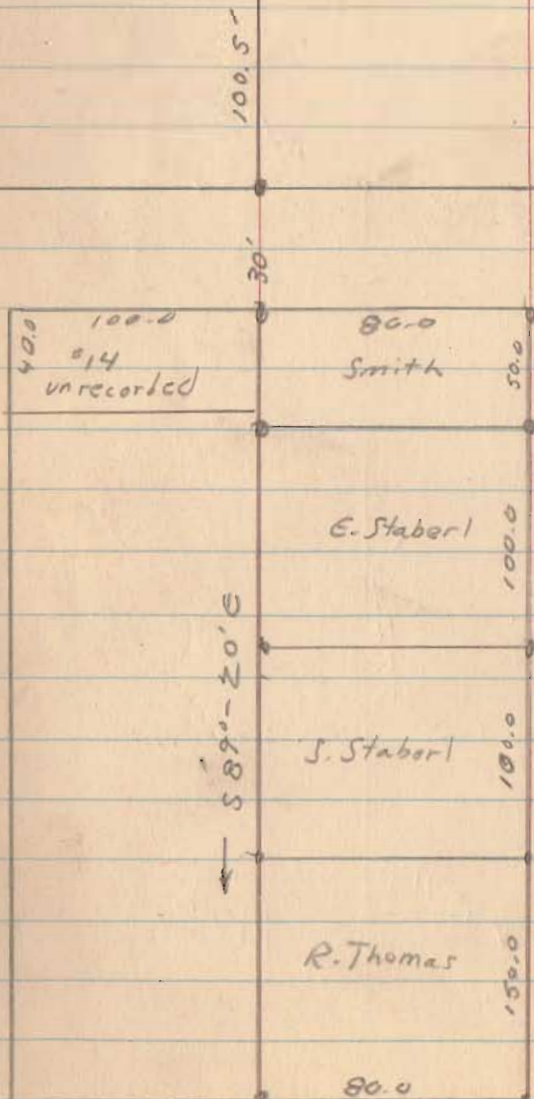 100.5
30'
100.0
80.0
40.0
#14
unrecorded
Smith
50.0
E. Staberl
100.0
S 89°-20' E
S. Staberl
100.0
R. Thomas
150.0
80.0